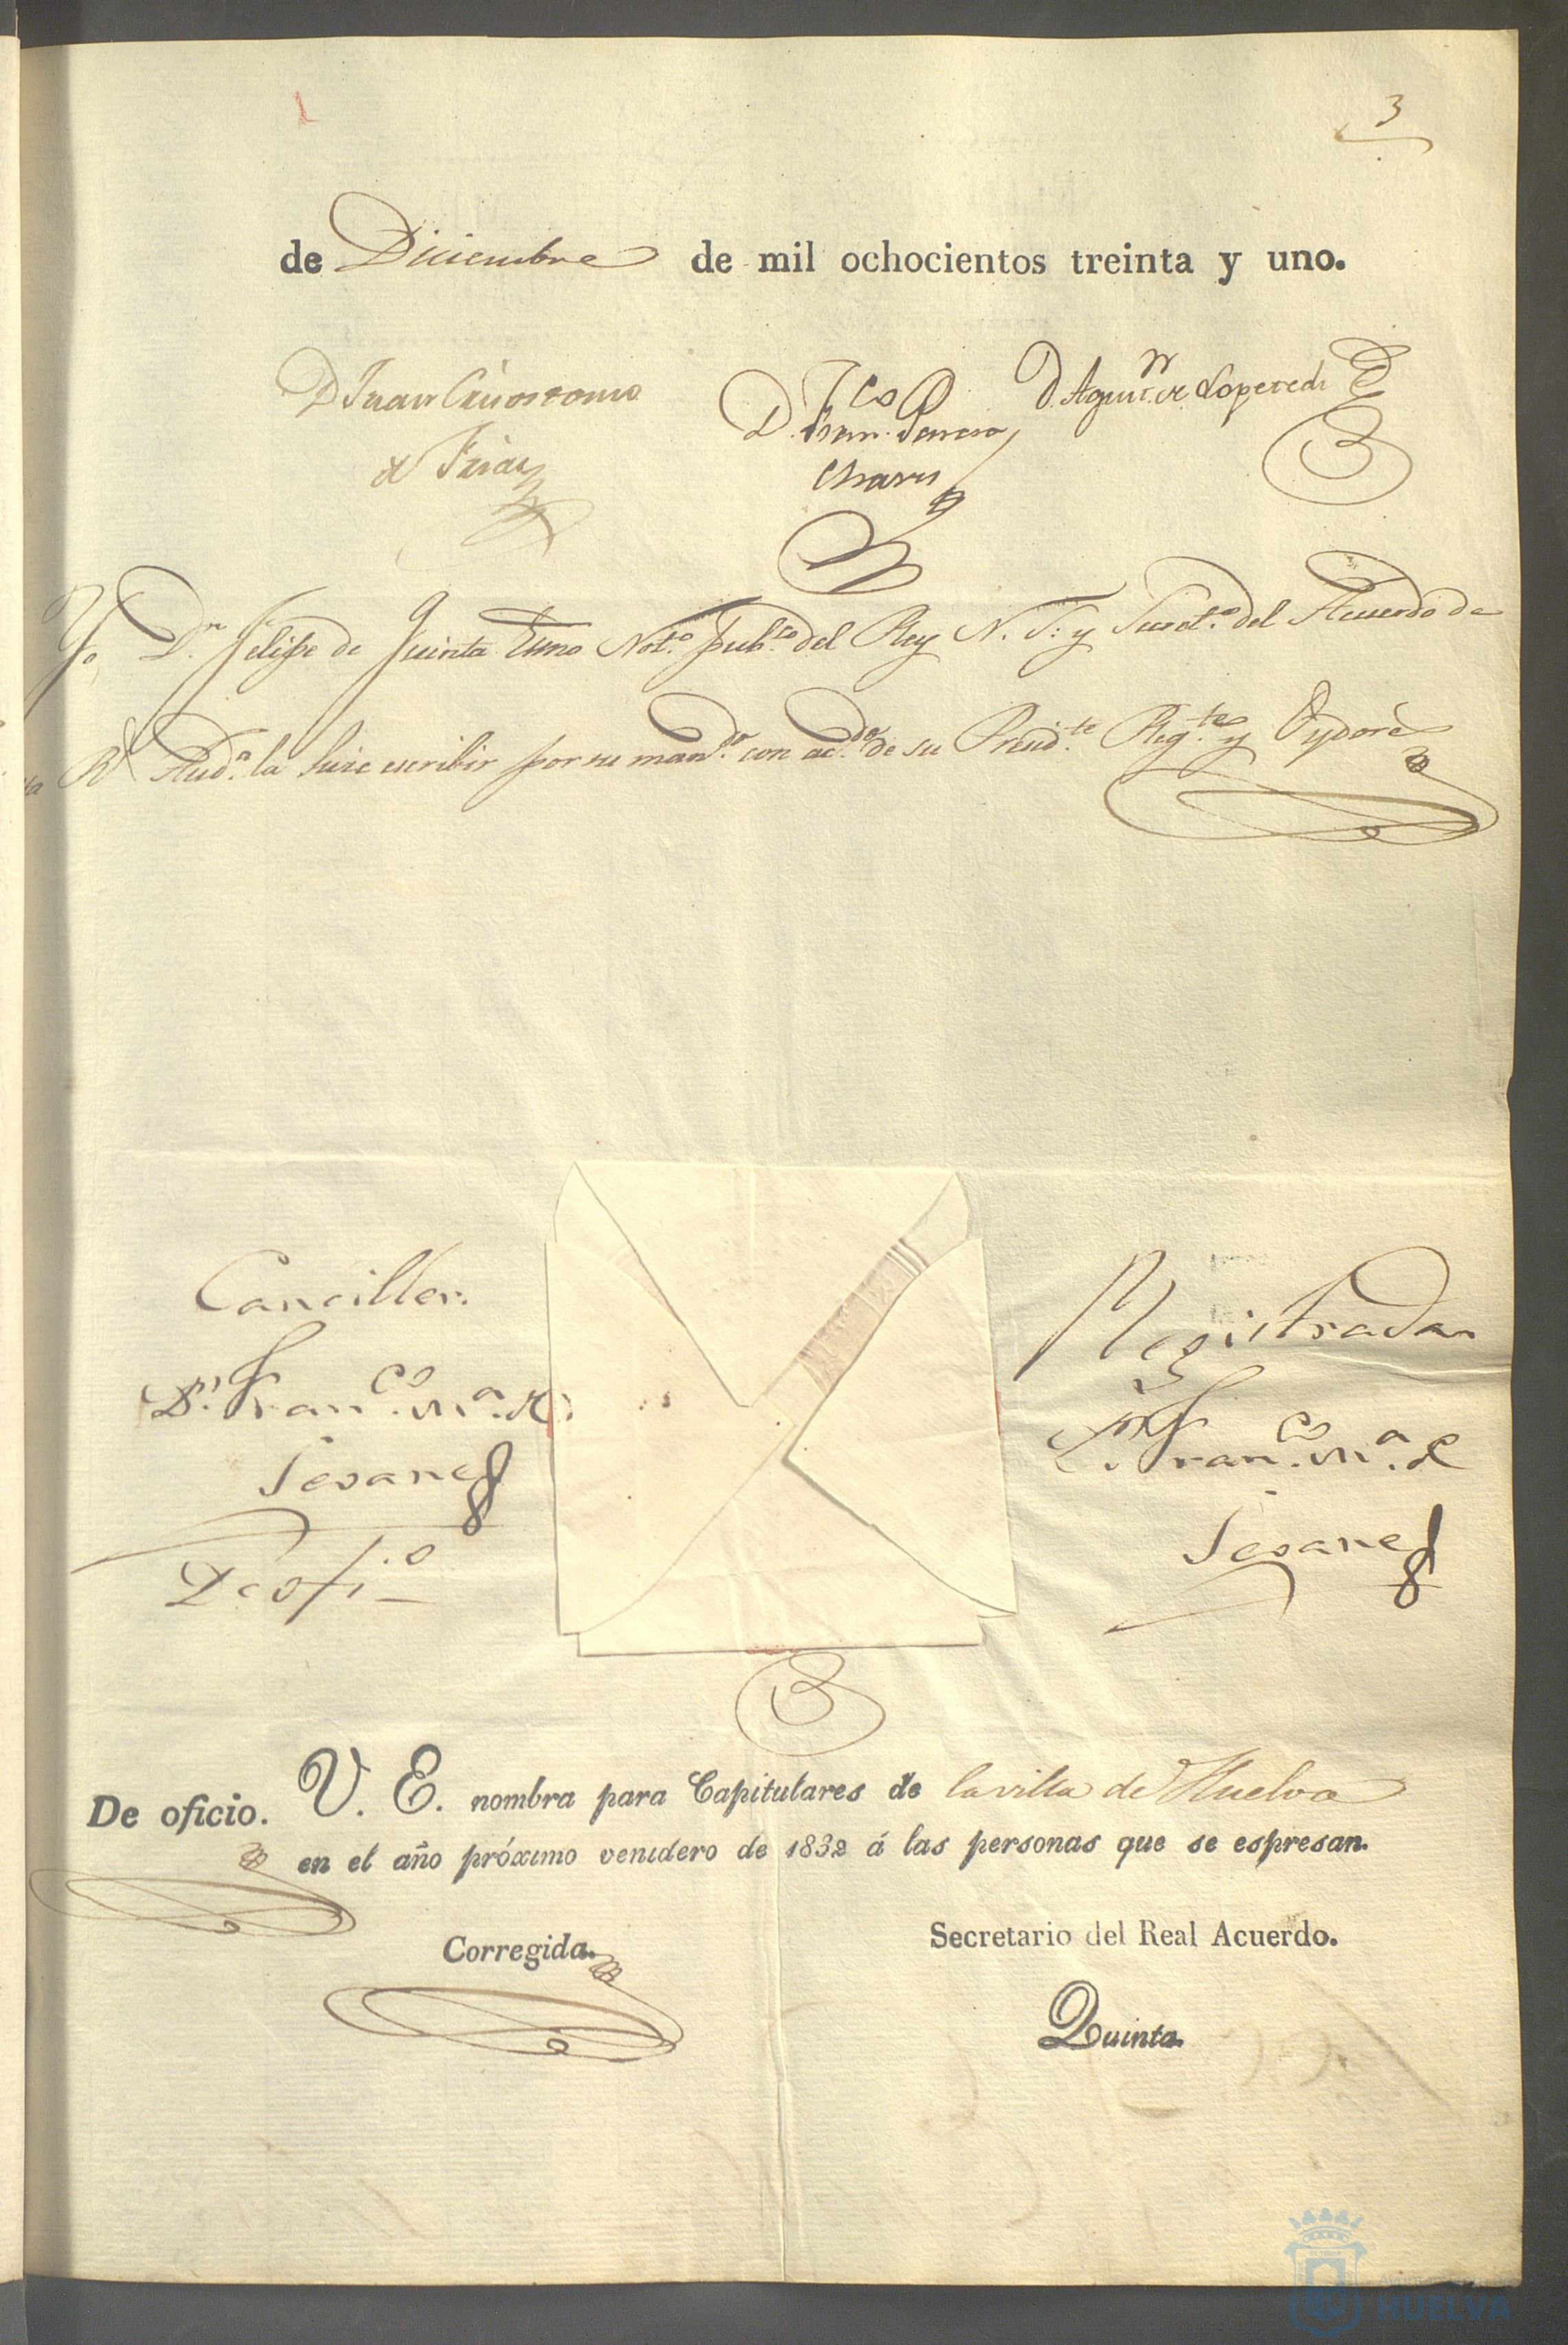 3
de Diciembre de mil ochocientos treinta y uno.
D Juan Crisostomo
de Frias
D. Fran.co Pereira
Chaves
D. Agust.n de Loperedi
Yo D.n Felipe de Quinta Esno Not.o Pub.co del Rey N. S. y Secret.o del Acuerdo de
R.l Aud.a la hice escribir por su mand.o con ac.do de su Presid.te Reg.te y Oydores
Canciller.
D.n Fran.co M.a de
Seoane
De ofi.o
Registrada
D.n Fran.co M.a de
Seoane
De oficio. V. E. nombra para Capitulares de la villa de Huelva
en el año próximo venidero de 1832 á las personas que se espresan.
Corregida.
Secretario del Real Acuerdo.
Quinta.
HUELVA